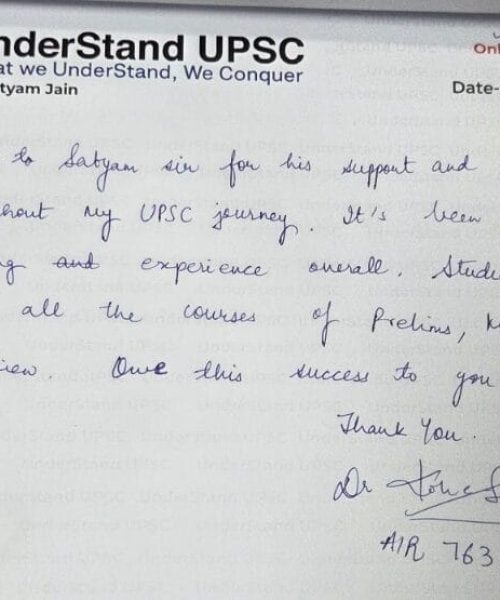 nderStand UPSC
at we UnderStand, We Conquer
tyam Jain
Onl
Date-
to Satyam sir for his support and
hout my UPSC journey. It's been
g and experience overall. Stude
all the courses of Prelims,
view Owe this success to you
Thank You.
Dr
AIR 763